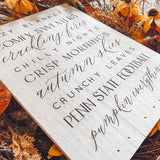 COMFY SWEATERS
crackling fires
CHILLY NIGHTS
CRISP MORNINGS
autumn skies
CRUNCHY LEAVES
PENN STATE FOOTBALL
pumpkin everything